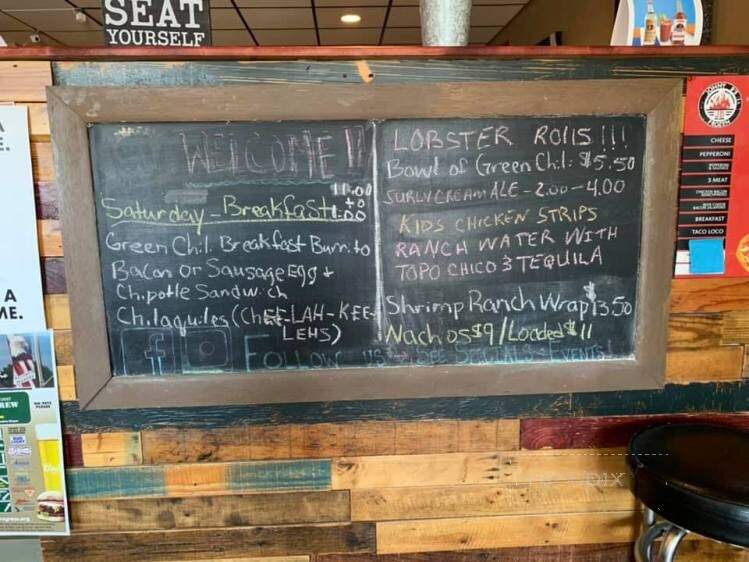 SEAT
YOURSELF
WELCOME!!
Saturday - Breakfast 11:00
to
1:00
Green Chil. Breakfast Burrito
Bacon or Sausage Egg +
Chipotle Sandwich
Chilaquiles (CHEE-LAH-KEE-
LEHS)
FOLLOW US - SEE SPECIALS + EVENTS!
LOBSTER ROllS!!!
Bowl of Green Chil: $5.50
SURLY CREAM ALE - 2.00 - 4.00
KIDS CHICKEN STRIPS
RANCH WATER WITH
TOPO CHICO & TEQUILA
Shrimp Ranch Wrap $13.50
Nachos $9/Loaded $11
CHEESE
PEPPERONI
3 MEAT
BREAKFAST
TACO LOCO